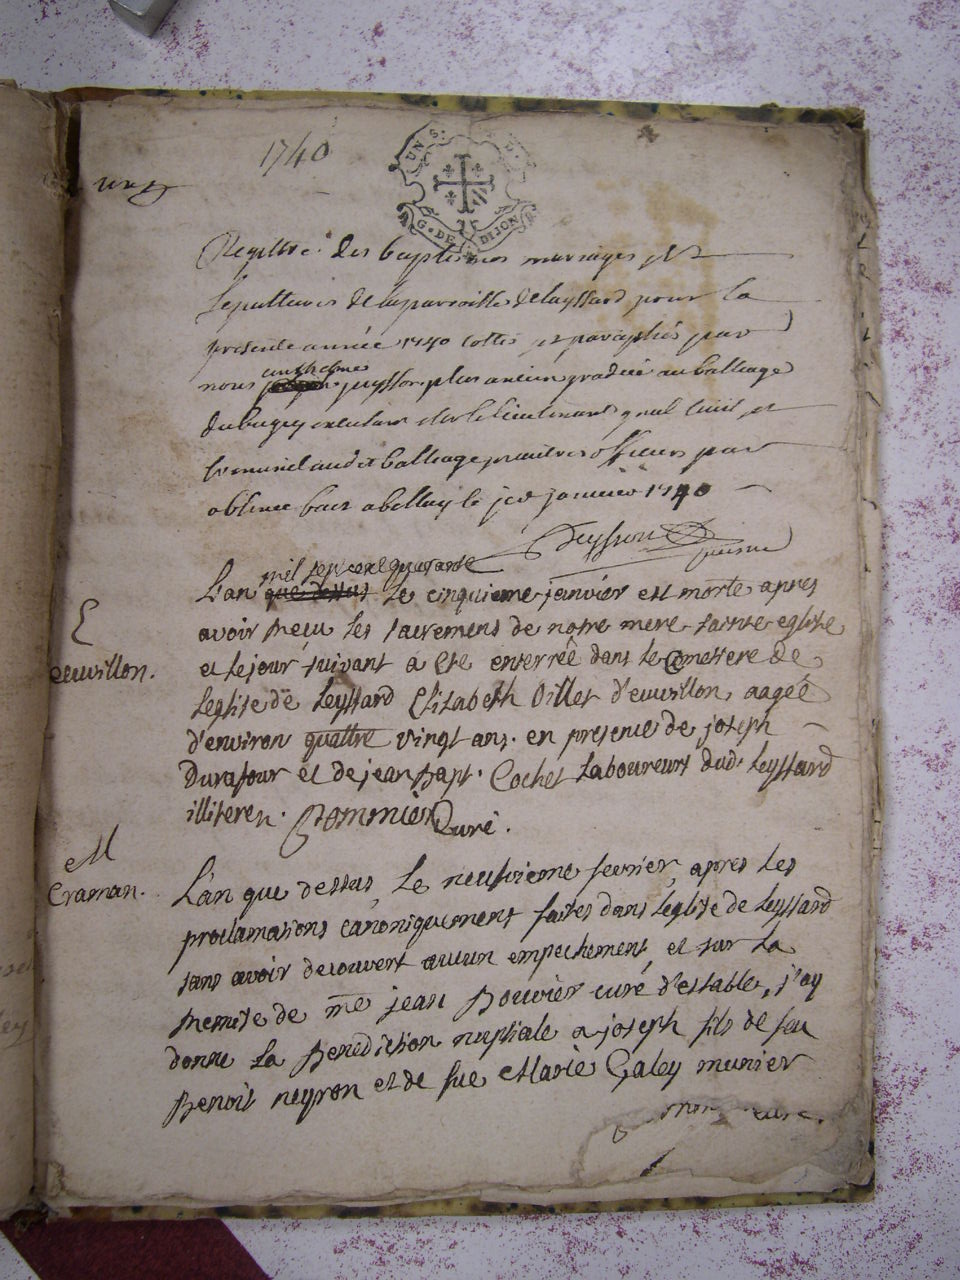 1740
UN S.
G. DE DIJON
Registre des baptesmes mariages et
sepultures de la parroisse de Leyssard pour la
presente année 1740 cottés et paraphés par
anthelme
nous peysson plus ancien gradué au balliage
du bugey
criminel audit balliage premiers officiers par
absence a belley le janvier 1740
Peysson
mil sept cent quarante
L'an que dessus Le cinquieme janvier est morte apres
avoir receu les sacremens de notre mere sainte eglise
E
et le jour suivant a eté enterrée dans le Cemettere de
euvillon.
l'eglise de Leyssard Elisabeth Villet d'euvillon, aagée
d'environ quattre vingt ans. en presence de joseph
Durafour et de jean bapt. Cochet Laboureurs dud. Leyssard
illiteres. Pommier Curé.
M
Craman.
L'an que dessus, Le neufvieme fevrier, apres les
proclamations canoniquement faites dans l'eglise de Leyssard
sans avoir decouvert aucun empechement, et sur la
remise de me jean Bouvier curé d'estable, j'ay
donné la Benediction nuptiale a joseph fils de feu
Benoit neyron et de fue Marie Galey munier
curé.